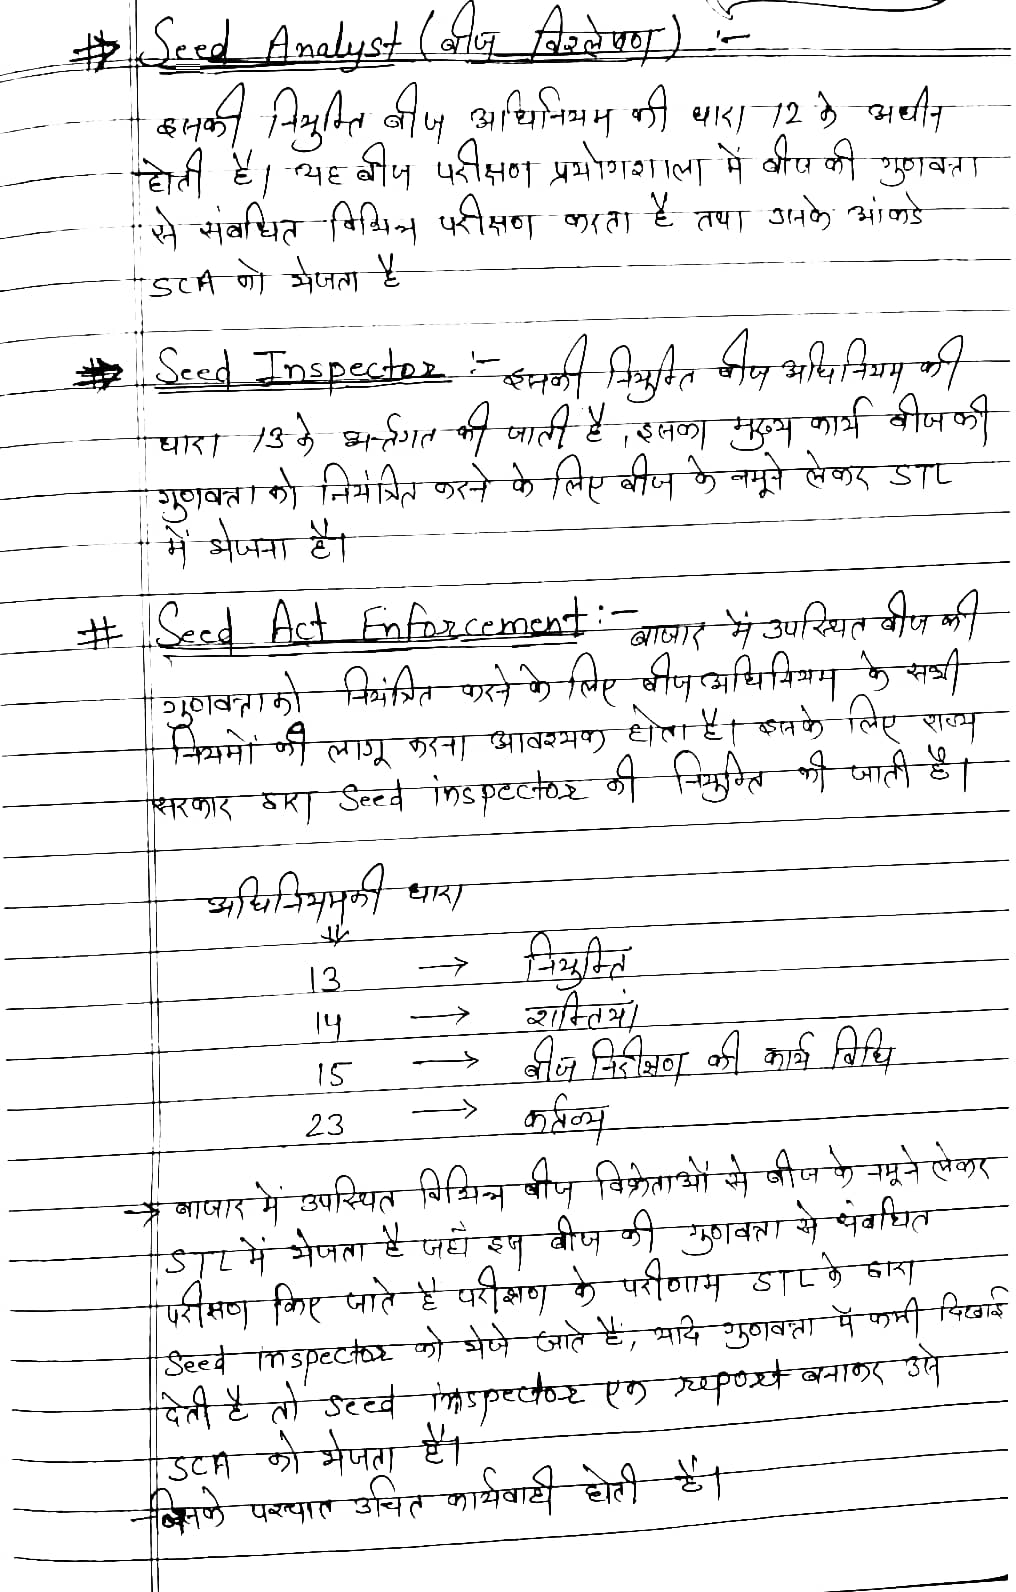 # Seed Analyst (बीज विश्लेषण) :-
इसकी नियुक्ति बीज अधिनियम की धारा 12 के अधीन
होती है। यह बीज परीक्षण प्रयोगशाला में बीज की गुणवत्ता
से संबधित विभिन्न परीक्षण करता है तथा उनके आंकडे
SCA को भेजता है
# Seed Inspector :- इसकी नियुक्ति बीज अधिनियम की
धारा 13 के अर्न्तगत की जाती है, इसका मुख्य कार्य बीज की
गुणवत्ता को नियंत्रित करने के लिए बीज के नमूने लेकर STL
में भेजना है।
# Seed Act Enforcement :- बाजार में उपस्थित बीज की
गुणवत्ता को नियंत्रित करने के लिए बीज अधिनियम के सभी
नियमों की लागू करना आवश्यक होता है। इसके लिए राज्य
सरकार द्वारा Seed inspector की नियुक्ति की जाती है।
अधिनियम की धारा
↓
13 → नियुक्ति
14 → शक्तियां
15 → बीज निरीक्षण की कार्य विधि
23 → कर्तव्य
→ बाजार में उपस्थित विभिन्न बीज विक्रेताओं से बीज के नमूने लेकर
STL में भेजता है जहाँ इन बीज की गुणवत्ता से संबधित
परीक्षण किए जाते है परीक्षण के परीणाम STL के द्वारा
Seed inspector को भेजे जाते है, यदि गुणवत्ता में कमी दिखाई
देती है तो Seed inspector एक report बनाकर उसे
SCA को भेजता है।
जिसके पश्चात उचित कार्यवाही होती है।